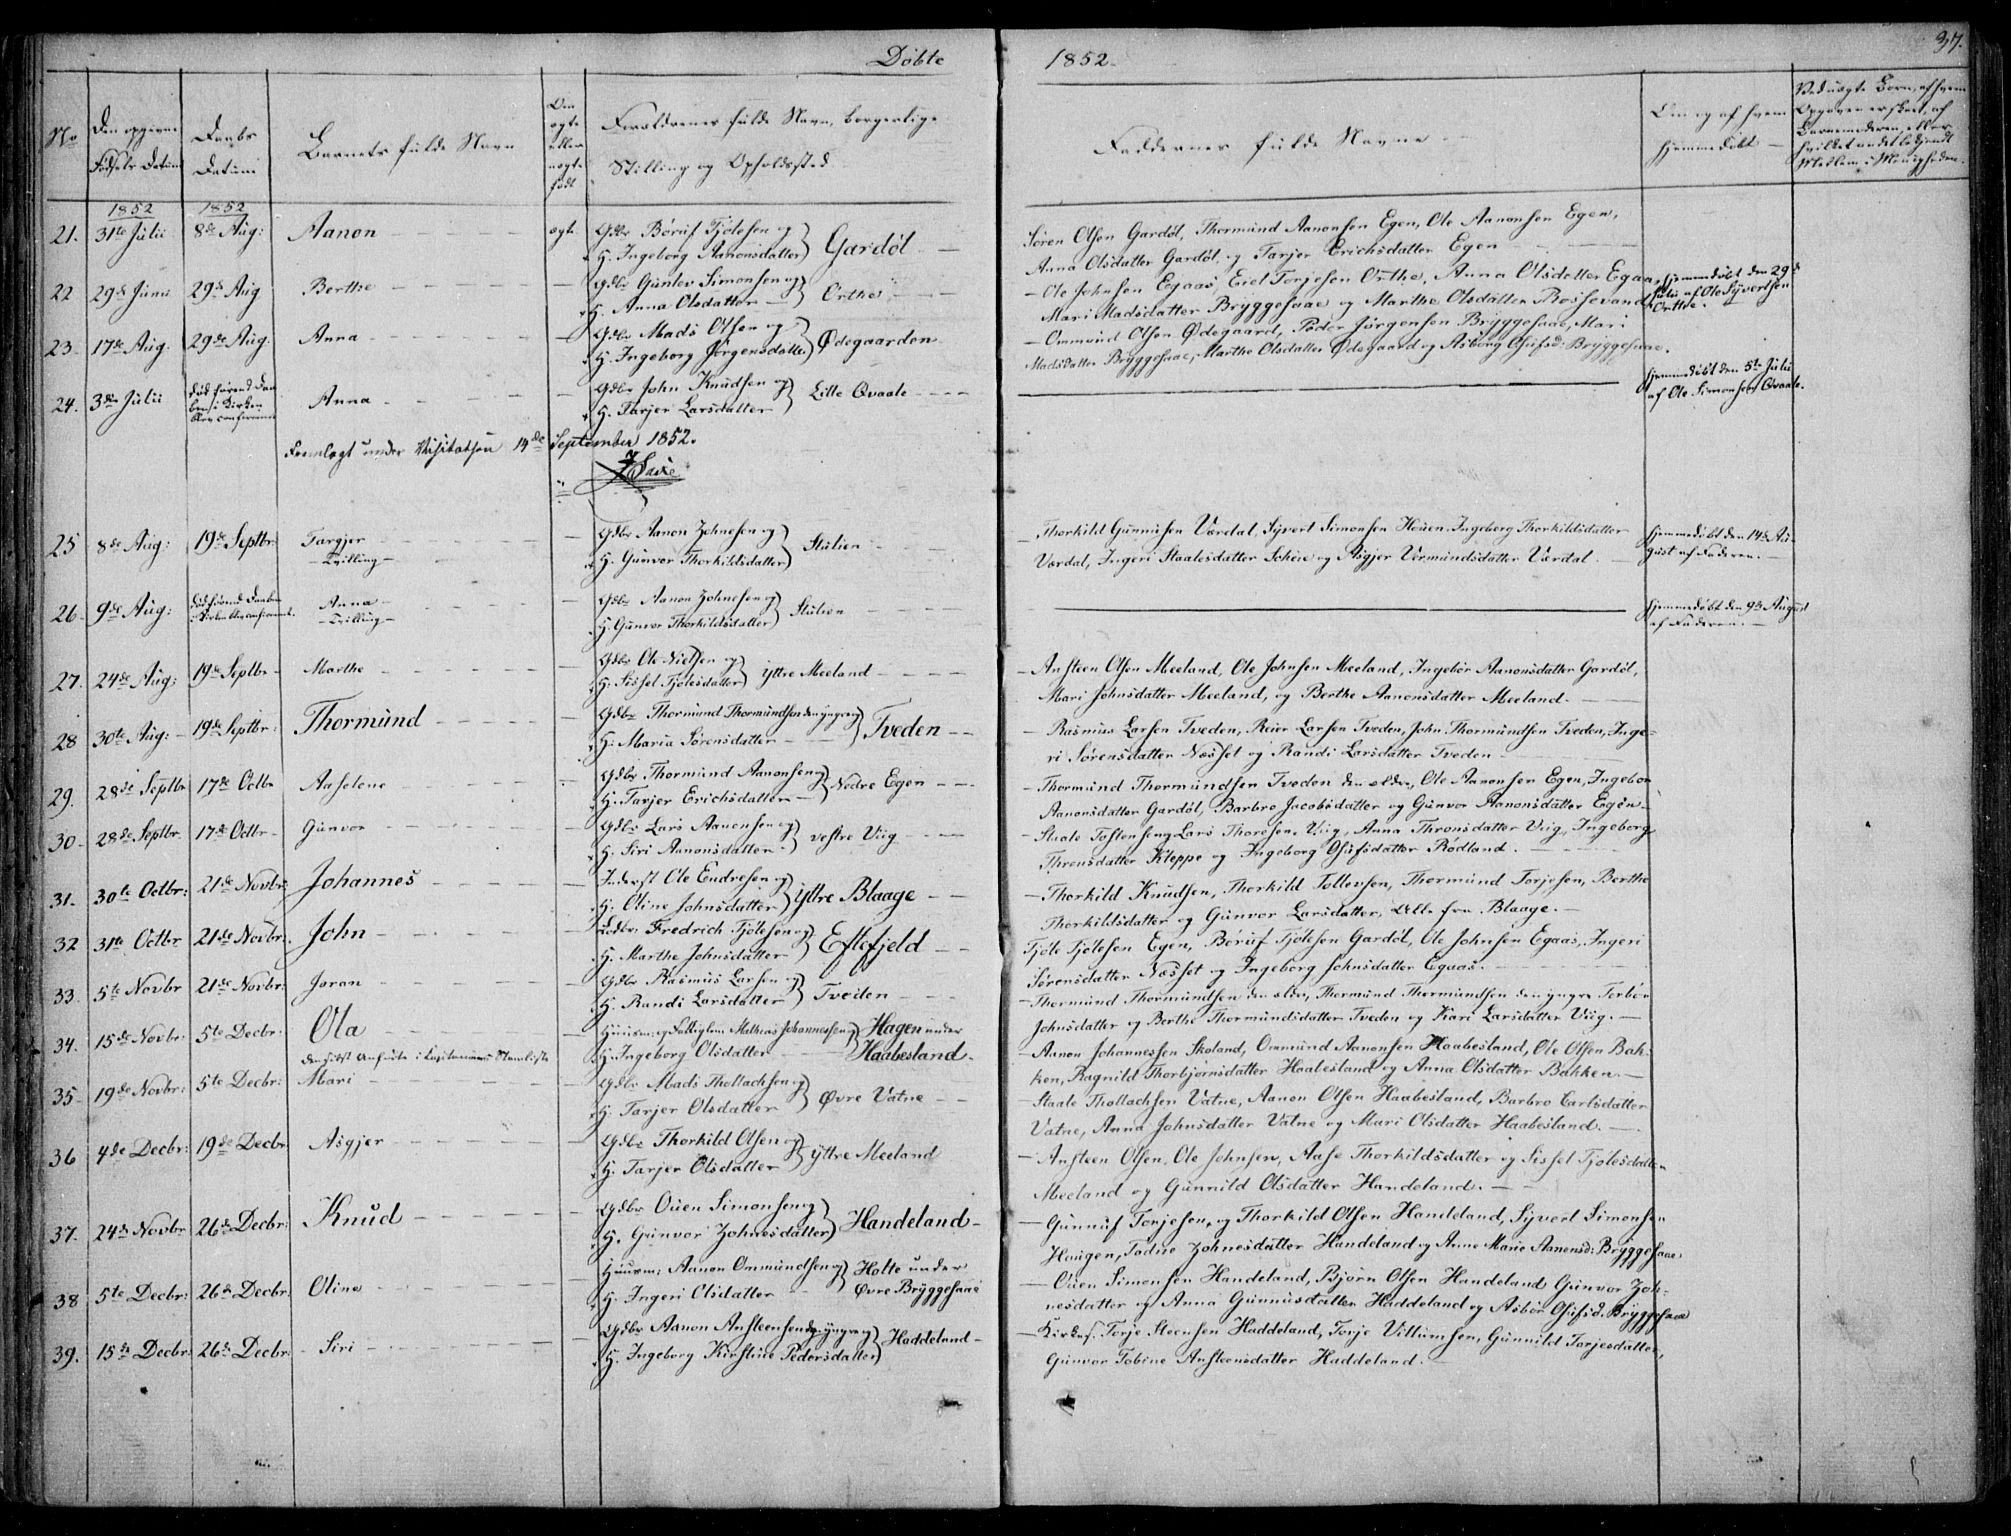 Døbte
1852.
37.
No
Den opgivne Fødsels Datum
Daabs Datum
Barnets fulde Navn
Om ægte eller uægte født
Forældrenes fulde Navn, borgerlige Stilling og Opholdssted
Faddernes fulde Navne
Om og af hvem hjemmedøbt
1852 1852
21. 31te Julii 8de Aug: Aanon ægte Gdbr Børuf Tjølesen og
H. Ingeborg Aanonsdatter } Gardøl
Søren Olsen Gardøl, Thormund Aanonsen Egen, Ole Aanonsen Egen,
Anna Olsdatter Gardøl, og Tarjer Erichsdatter Egen
22 29de Junii 29de Aug Berthe Gdbr Gunlev Simonsen og
H. Anna Olsdatter } Orthe
Ole Johnsen Egaas, Eiel Torjesen Orthe, Anna Olsdatter Egaas,
Mari Madsdatter Bryggesaae og Marthe Olsdatter Rossevand
hjemmedøbt den 29de
Julii af Ole Syvertsen
Orthe.
23. 17de Aug. 29de Aug. Anna Gdbr Mads Olsen og
H. Ingeborg Jørgensdatter } Ødegaarden
Ommund Olsen Ødegaard, Peder Jørgensen Bryggesaae, Mari
Madsdatter Bryggesaae, Marthe Olsdatter Ødegaard og Asborg Gjufsd: Bryggesaae.
24. 3die Julii død førend Daaben i Kirken blev confirmeret Anna Gdbr John Knudsen og
H. Tarjer Larsdatter } Lille Qvaale
hjemmedøbt den 5te Julii
af Ole Simonsen Qvaale.
Fremlagt under Visitatsen 14de September 1852.
25 8de Aug: 19de Septbr: Targjer Gdbr Aanon Zohnesen og
Tvilling H. Gunvor Thorkildsdatter } Stulien
Thorkild Gunnusen Værdal, Syvert Simonsen Houen, Ingeborg Thorkildsdatter
Værdal, Ingeri Staalesdatter Scheie og Asgjer Vermundsdatter Værdal.
hjemmedøbt den 14de Au-
gust af Faderen.
26. 9de Aug: død førend Daaben i Kirken blev confirmeret. Anna Gdbr Aanon Zohnesen og
Tvilling H. Gunvor Thorkildsdatter } Stulien
hjemmedøbt den 9de August
af Faderen.
27. 24de Aug: 19de Septbr. Marthe Gdbr Ole Nielsen og
H. Sissel Tjølesdatter } yttre Meeland
Ansteen Olsen Meeland, Ole Johnsen Meeland, Ingebor Aanonsdatter Gardøl,
Mari Johnsdatter Meeland, og Berthe Aanonsdatter Meeland.
28 30te Aug: 19de Septbr: Thormund Gdbr Thormund Thormundsen den yngre og
H. Maria Sørensdatter } Tveden
Rasmus Larsen Tveden, Reier Larsen Tveden, John Thormundsen Tveden, Inge-
ri Sørensdatter Næsset og Randi Larsdatter Tveden
29. 28de Septbr 17de Octbr Aaselene Gdbr Thormund Aanonsen og
H. Tarjer Erichsdatter } Nedre Egen
Thormund Thormundsen Tveden den eldre, Ole Aanonsen Egen, Ingebor
Aanonsdatter Gardøl, Barbro Jacobsdatter og Gunvor Aanonsdatter Egen
30. 28de Septbr. 17de Octbr Gunvor Gdbr Lars Aanonsen og
H. Siri Aanonsdatter } vestre Viig
Staale Tostensen og Lars Thoresen Viig, Anna Thronsdatter Viig, Ingeborg
Thronsdatter Kleppe og Ingeborg Gjufsdatter Rødland.
31. 30te Octbr: 21de Novbr: Johannes Inderst Ole Endresen og
H. Oline Johnsdatter } yttre Blaage
Thorkild Knudsen, Thorkild Tollevsen, Thormund Torjesen, Berthe
Thorkildsdatter og Gunvor Larsdatter, Alle fra Blaage.
32 31te Octbr 21de Novbr: John Gdbr Fredrich Tjølesen og
H. Marthe Johnsdatter } Eftefjeld
Tjøle Tjølesen Egen, Børuf Tjølesen Gardøl, Ole Johnsen Egaas, Ingeri
Sørensdatter Næsset og Ingeborg Johnsdatter Egaas.
33. 5te Novbr 21de Novbr: Joran Gdbr Rasmus Larsen og
H. Randi Larsdatter } Tveden
Thormund Thormundsen den eldre, Thormund Thormundsen den yngre, Torbor
Johnsdatter og Berthe Thormundsdatter Tveden og Kari Larsdatter Viig.
34. 15de Novbr: 5te Decbr: Ola Huusm: og Mathias Johannessen og
H. Ingeborg Olsdatter } Hagen under
Haabesland.
Aanon Johannessen Skoland, Ommund Aanonsen Haabesland, Ole Olsen Bak-
ken, Ragnild Thorbjørnsdatter Haabesland og Anna Olsdatter Bakken.
35. 19de Novbr: 5te Decbr: Mari Gdbr Mads Thollachsen og
H. Tarjer Olsdatter } Øvre Vatne
Staale Thollachsen Vatne, Aanon Olsen Haabesland, Barbro Carlsdatter
Vatne, Anna Johnsdatter Vatne og Mari Olsdatter Haabesland.
36 4de Decbr: 19de Decbr Asgjer Gdbr Thorkild Olsen og
H. Tarjer Olsdatter } yttre Meeland
Ansteen Olsen, Ole Johnsen, Aase Thorkildsdatter og Sissel Tjølesdatter
Meeland og Gunnild Olsdatter Handeland.
37. 24de Novbr 26de Decbr: Knud Gdbr Ouen Simonsen og
H. Gunvor Zohnesdatter } Handeland
Gunnuf Torjesen, og Thorkild Olsen Handeland, Syvert Simonsen
Hougen, Todne Zohnesdatter Handeland og Anne Marie Aanensd: Bryggesaae
38 5te Decbr: 26de Decbr: Oline Huusm: Aanon Ommundsen og
H. Ingeri Olsdatter } Holte under
Øvre Bryggesaae
Ouen Simonsen Handeland, Bjørn Olsen Handeland, Gunvor Zoh-
nesdatter og Anna Gunnusdatter Haddeland og Asbor Gjufsd: Bryggesaae
39. 15de Decbr: 26de Decbr: Siri Gdbr Aanon Ansteensen d: yngre og
H. Ingeborg Kirstine Pedersdatter } Haddeland
Kirkes. Torje Steensen Haddeland, Torje Villumsen, Gunnild Torjesdatter,
Gunvor Tobine Ansteensdatter Haddeland.